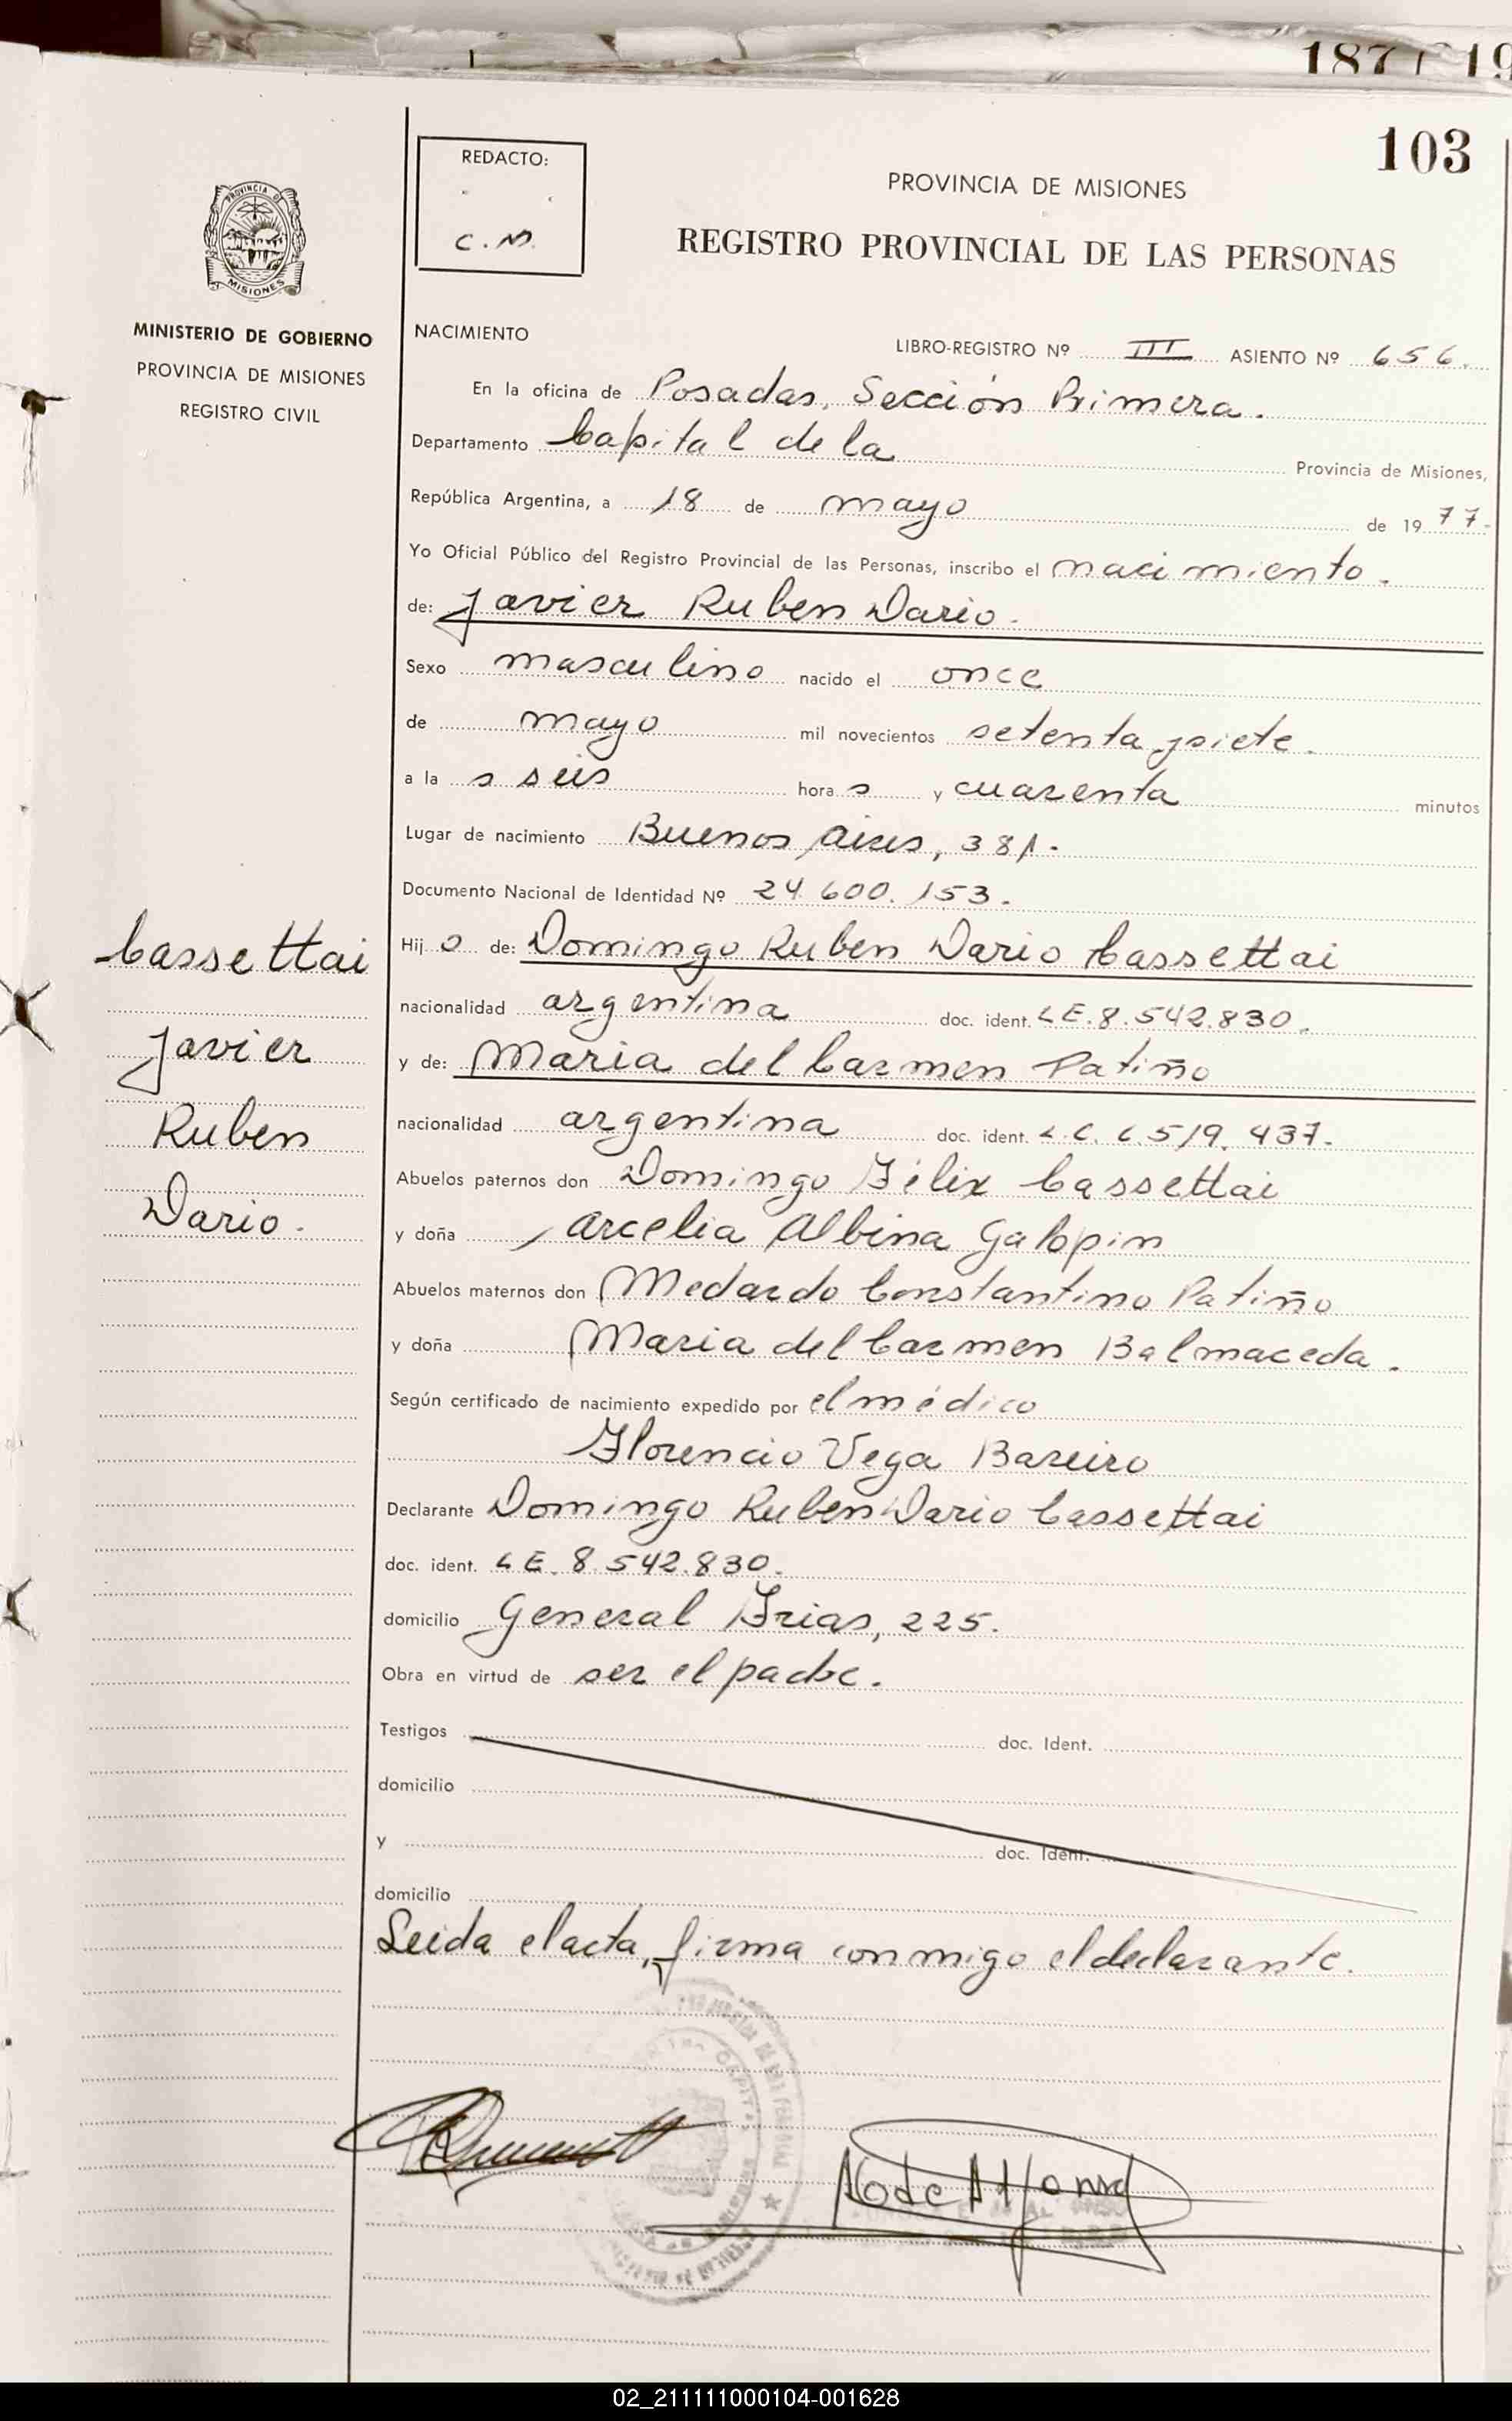 187 19
103
REDACTO:
C.M.
PROVINCIA DE MISIONES
REGISTRO PROVINCIAL DE LAS PERSONAS
PROVINCIA DE
MISIONES
MINISTERIO DE GOBIERNO
PROVINCIA DE MISIONES
REGISTRO CIVIL
NACIMIENTO
LIBRO-REGISTRO Nº III ASIENTO Nº 656.
En la oficina de Posadas, Sección Primera.
Departamento Capital de la Provincia de Misiones,
República Argentina, a 18 de mayo de 1977.
Yo Oficial Público del Registro Provincial de las Personas, inscribo el nacimiento.
de: Javier Ruben Dario.
Sexo masculino nacido el once
de mayo mil novecientos setenta y siete.
a la s seis hora s y cuarenta minutos
Lugar de nacimiento Buenos Aires, 381.
Documento Nacional de Identidad Nº 24.600.153.
Hijo de: Domingo Ruben Dario Cassettai
nacionalidad argentina doc. ident. LE.8.542.830.
y de: Maria del Carmen Patiño
nacionalidad argentina doc. ident. L.C. 6.519.437.
Abuelos paternos don Domingo Félix Cassettai
y doña Arcelia Albina Galopin
Abuelos maternos don Medardo Constantino Patiño
y doña Maria del Carmen Balmaceda.
Según certificado de nacimiento expedido por el médico
Florencio Vega Bareiro
Declarante Domingo Ruben Dario Cassettai
doc. ident. LE. 8.542.830.
domicilio General Frias, 225.
Obra en virtud de ser el padre.
Testigos doc. Ident.
domicilio
y doc. Ident.
domicilio
Leida el acta, firma conmigo el declarante.
Cassettai
Javier
Ruben
Dario.
02_211111000104-001628